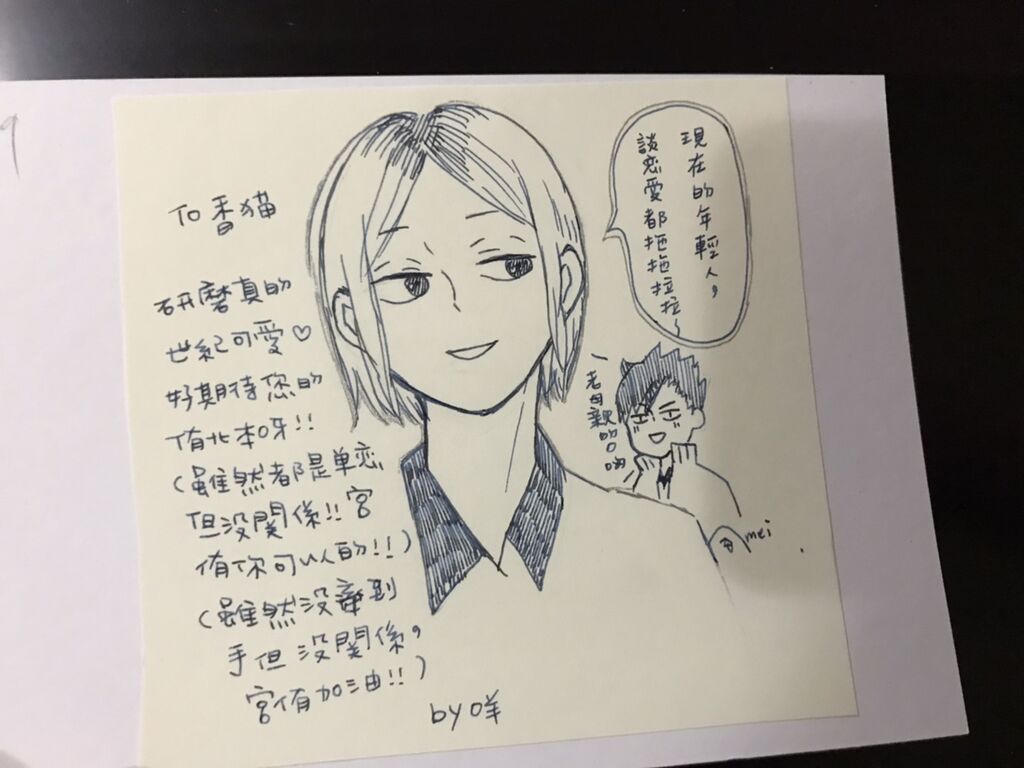 To 香貓
研磨真的
世紀可愛♡
好期待您的
侑北本呀!!
(雖然都是單戀
但没関係!!宮
侑你可以的!!)
(雖然没辦到
手但没関係,
宮侑加油!!)
by 咩
現在的年輕人,
談戀愛都拖拖拉拉~
老母親的吶
mei
9